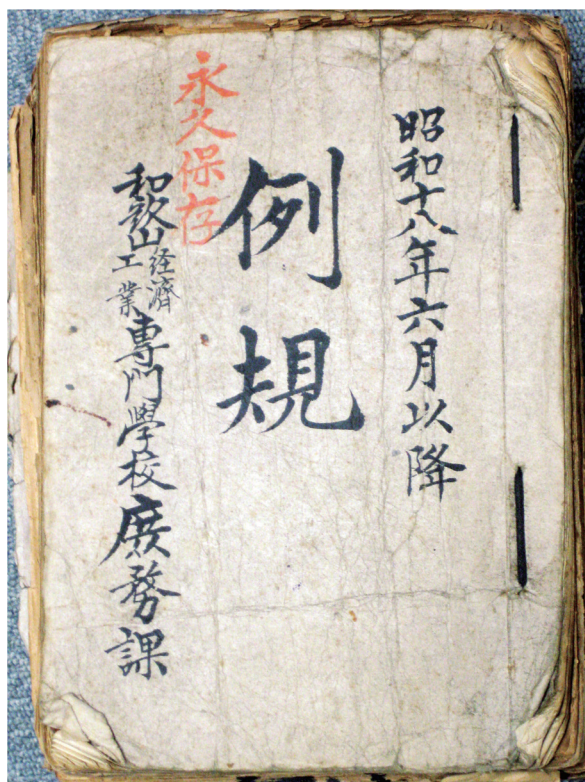 昭和十八年六月以降
例規
永久保存
和歌山経済工業専門學校庶務課